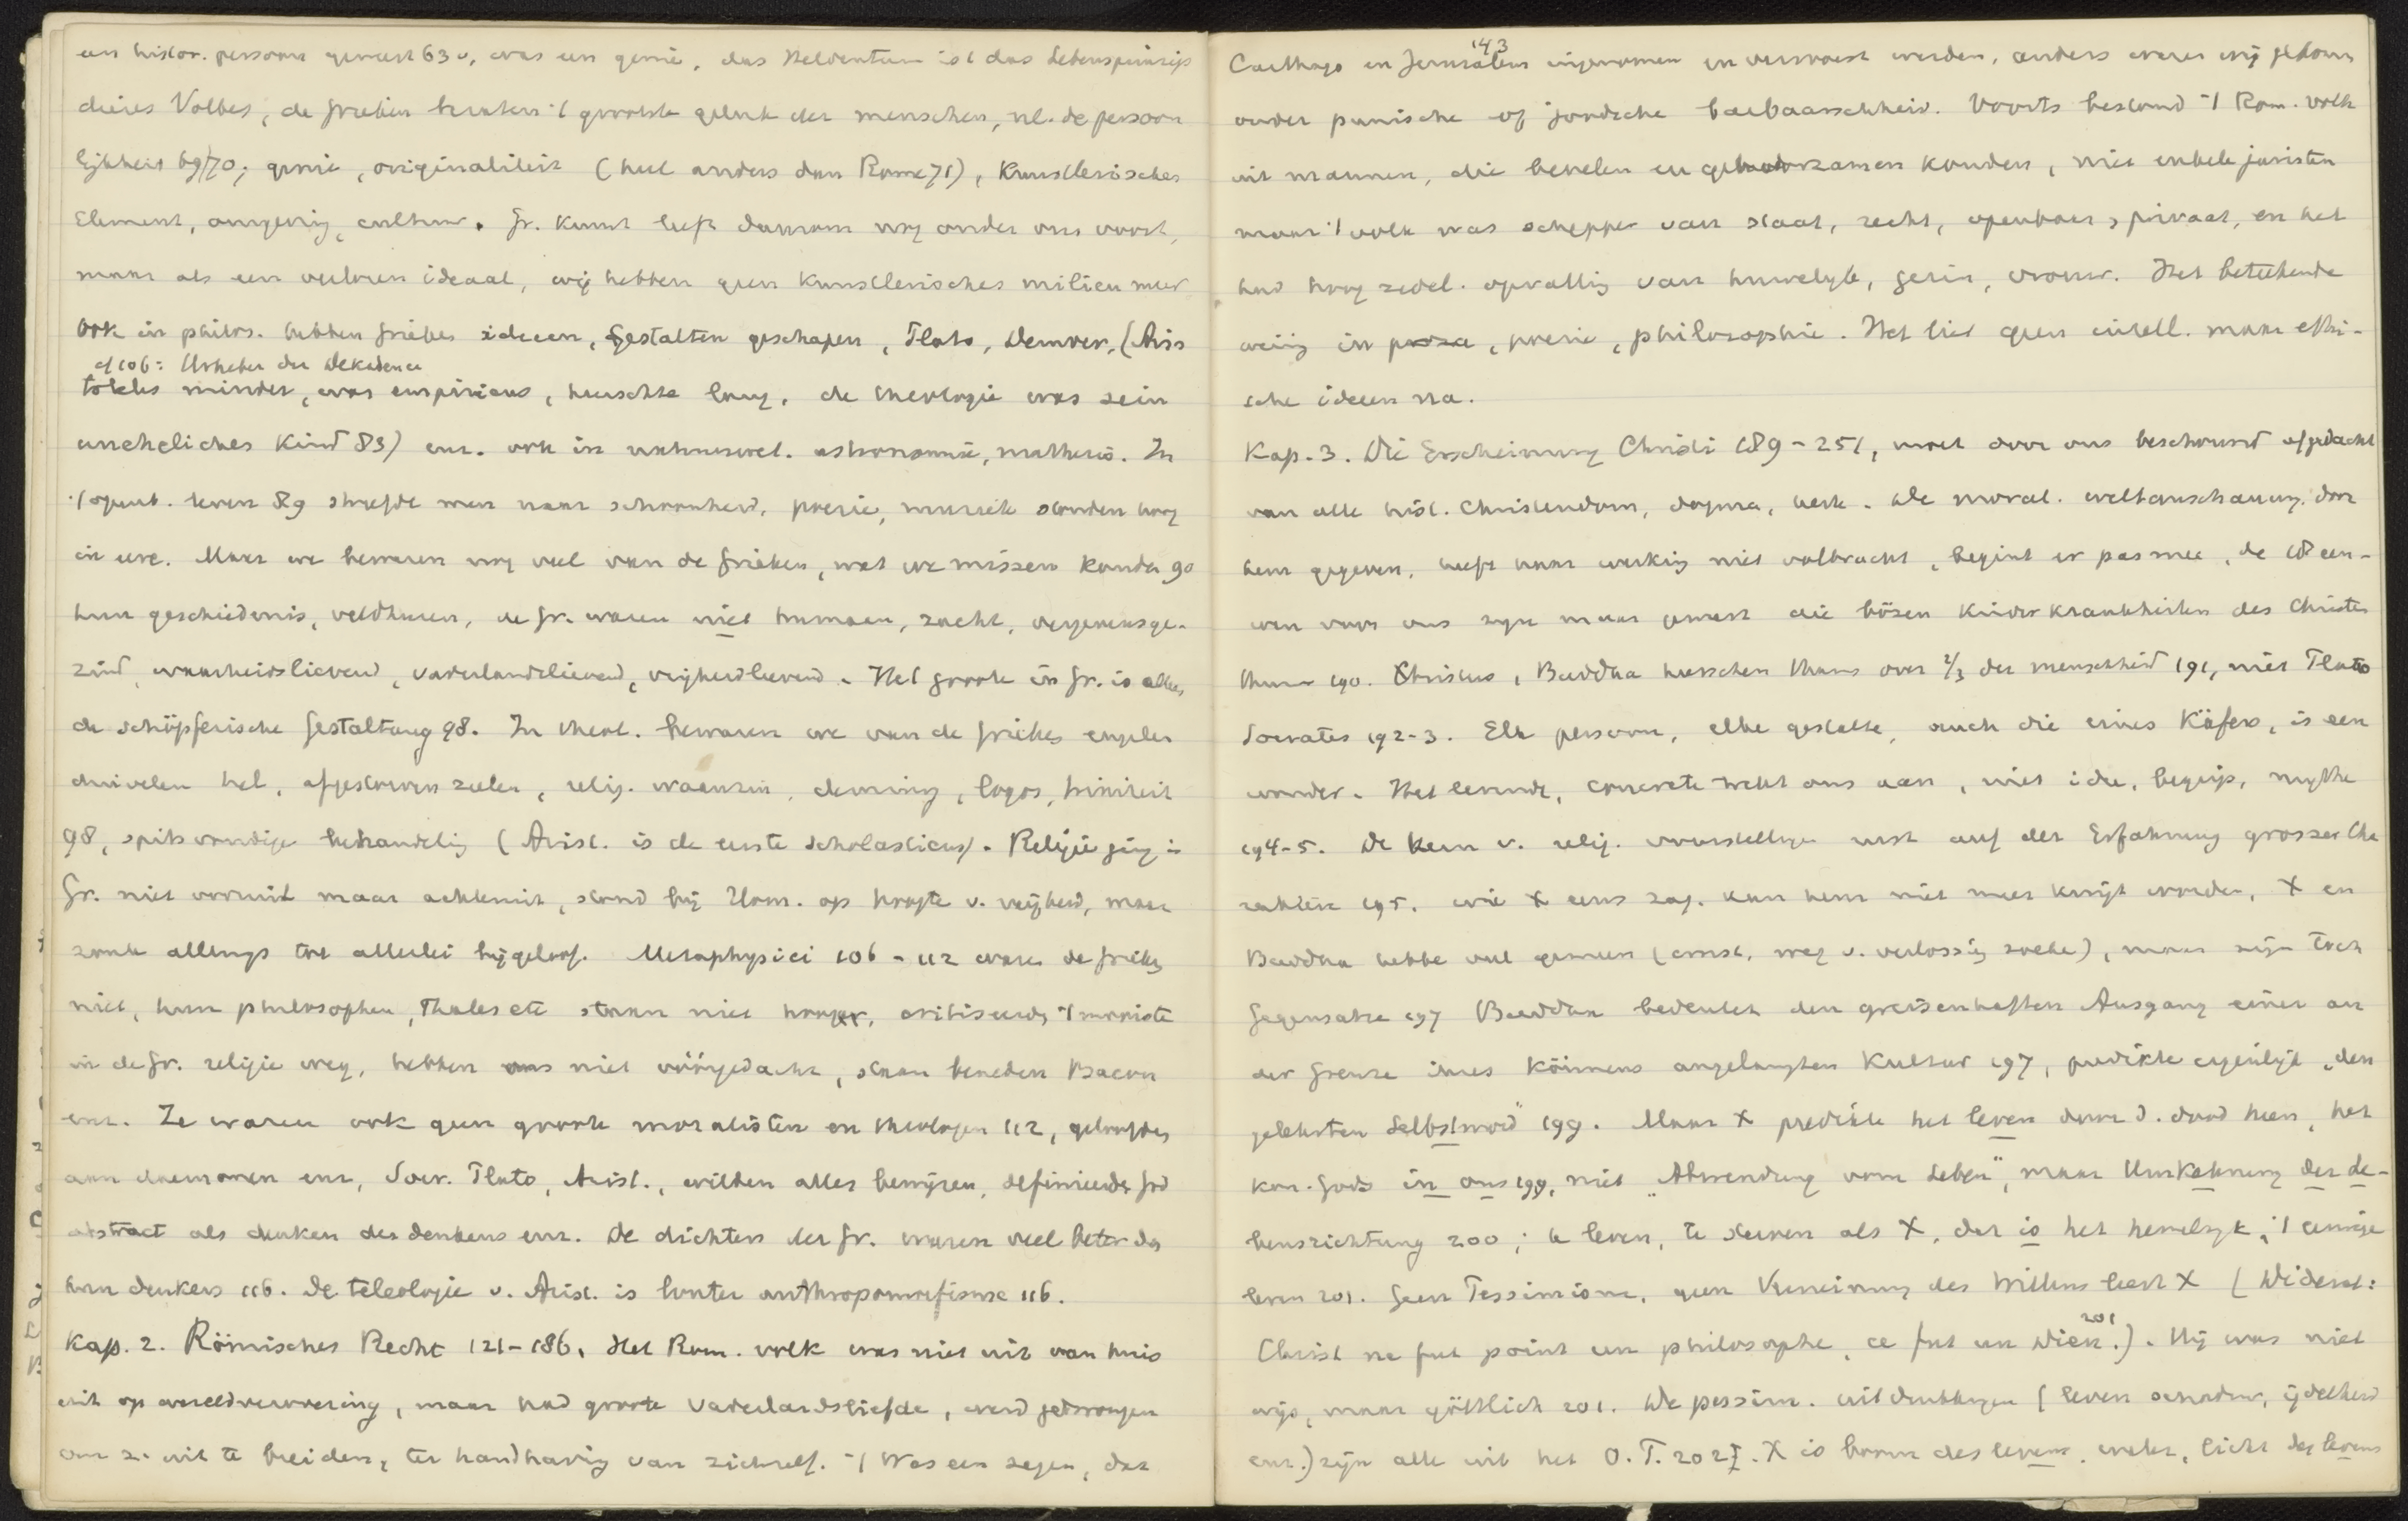 een histor. persoon geweest 63 v, was een genie, das Heldentum ist das Lebensprinzip
dieses Volkes, de Grieken brachten 't grootste geluk der menschen, nl. de persoon
lijkheid 69/70; genie, originaliteit (heel anders dan Rome 71), Künstlerisches
Element, omgeving, cultuur. Gr. kunst leeft daarom nog onder ons voort,
maar als een verloren ideaal, wij hebben geen künstlerisches milieu meer
Ook in philos. hebben Grieken ideeen, Gestalten geschapen, Plato, Democr, (Aris
cf 106: Urheber der Dekadence
toteles minder, was empiricus, heerschte lang, de theologie was sein
uneheliches Kind 83) enz. ook in natuurwet. astronomie, mathesis. In
't openb. leven 89 streefde men naar schoonheid, poezie, muziek stonden hoog
in eere. Maar we bewaren nog veel van de Grieken, wat we missen konden 90
hun geschiedenis, veldheeren, de Gr. waren niet humaan, zacht, vergevensge-
zind, waarheidslievend, vaderlandslievend, vrijheidlievend. Het groote in Gr. is alles
de schöpferische Gestaltung 98. In theol. bewaren we van de Grieken engelen
duivelen hel, afgestorven zielen, relig. waanzin, demiurg, logos, triniteit
98, spitsvondige behandeling (Arist. is de eerste scholasticus). Religie ging in
Gr. niet vooruit maar achteruit, stond bij Hom. op hoogte v. vrijheid, maar
zonk allengs tot allerlei bijgeloof. Metaphysici 106-112 waren de Grieken
niet, hun philosophen, Thales etc staan niet hooger, critiseerden 't mooiste
in de Gr. religie weg, hebben ons niet vóórgedacht, staan beneden Bacon
enz. Ze waren ook geen groote moralisten en theologen 112, geloofden
aan daemonen enz, Socr. Plato, Arist., wilden alles bewijzen, definieerden God
abstract als denken des denkens enz. De dichters der Gr. waren veel beter dan
hun denkers 116. De teleologie v. Arist. is louter anthropomorfisme 116.
Kap. 2. Römisches Recht 121-186. Het Rom. volk was niet uit van huis
uit op wereldverovering, maar had groote vaderlandsliefde, werd gedwongen
om z. uit te breiden, ter handhaving van zichzelf. 't Was een zegen, dat
Carthago en Jeruzalem 143 ingenomen en verwoest werden, anders waren wij gekomen
onder punische of joodsche barbaarschheid. Voorts bestond 't Rom. volk
uit mannen, die bevelen en gehoorzamen konden, niet enkele juristen
maar 't volk was schepper van staat, recht, openbaar, privaat, en het
had hoog zedel. opvatting van huwelijk, gezin, vrouw. Het beteekende
weinig in proza, poezie, philosophie. Het liet geen intell. maar ethi-
sche ideeen na.
Kap. 3. Die Erscheinung Christi 189-251, moet door ons beschouwd afgedacht
van alle hist. Christendom, dogma, kerk. De moral. weltanschauung, door
hem gegeven, heeft haar werking niet volbracht, begint er pas mee, de 18 eeu-
wen voor ons zijn maar geweest die bösen Kinderkrankheiten des Christen
thums 190. Christus, Buddha heerschen thans over 2/3 der menschheid 191, niet Plato
Socrates 192-3. Elk persoon, elke gestalte, auch die eines Käfers, is een
wonder. Het levende, concrete trekt ons aan, niet idee, begrip, mythe
194-5. De kern v. relig. voorstellingen rust auf der Erfahrung grosser Cha
raktere 195. wie X eens zag. kan hem niet meer kwijt worden. X en
Buddha hebben veel gemeen (ernst, weg v. verlossing zoeken), maar zijn toch
Gegensätze 197 Buddha bedeutet den greisenhaften Ausgang einer an
der Grenze ihres Könnens angelangten Kultur 197, predikte eigenlijk „den
gelebten Selbstmord" 199. Maar X predikte het leven door d. dood heen, het
kon. Gods in ons 199, niet „Abwendung vom Leben", maar Umkehrung der Le-
bensrichtung 200; te leven, te sterven als X, dat is het hemelrijk, 't eeuwige
leven 201. Geen Pessimisme, geen Verneinung des Willens leert X (Diderot:
Christ ne fut point un philosophe, ce fut un Dieu. 201). Hij was niet
wijs, maar göttlich 201. De pessim. uitdrukkingen (leven schaduw, ijdelheid
enz.) zijn alle uit het O. T. 202. X is boom des levens, water, licht des levens